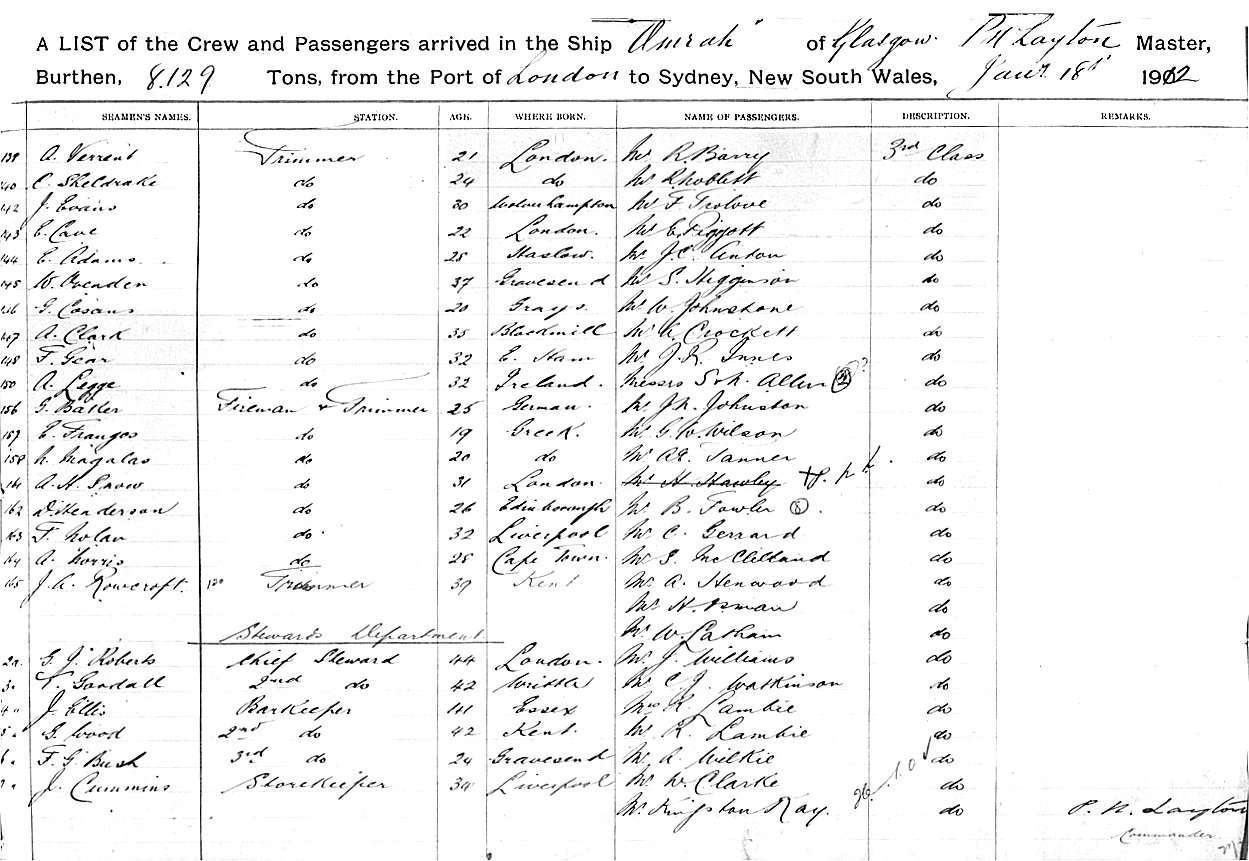 A LIST of the Crew and Passengers arrived in the Ship "Omrah" of Glasgow. P N Layton Master,
Burthen, 8.129 Tons, from the Port of London to Sydney, New South Wales, Jany 18th 1902
SEAMEN'S NAMES. STATION. AGE. WHERE BORN. NAME OF PASSENGERS. DESCRIPTION. REMARKS.
139 A. Verrent Trimmer 21 London. Mr R. Barry 3rd Class
140 C. Sheldrake do 24 do Mr R Noblett do
142 J. Evans do 30 Wolverhampton Mr F Trolove do
143 E. Cave do 22 London. Mr E. Piggott do
144 E. Adams. do 28 Haslow. Mr J.C. Anton do
145 W. Ovenden do 37 Gravesend Mr S. Higginson do
146 G. Cosans do 20 Grays. Mr W. Johnstone do
147 A. Clark do 35 Blackmill Mr A. Crockett do
148 F. Gear do 32 E. Ham Mr J.R. Innes do
150 A. Legge do 32 Ireland. Messrs S & R. Allen (2)? do
156 G. Balter Fireman & Trimmer 25 German. Mr J.N. Johnston do
157 E. Frangos do 19 Greek. Mr G.W. Wilson do
158 N. Magalas do 20 do Mr A.E. Tanner do
161 A. H. Snow do 31 London. Mr H Hawley do
162 D. Henderson do 26 Edinborough Mr B. Fowler do
163 F. Nolan do 32 Liverpool Mr C. Gerrard do
164 A. Norris do 28 Cape Town. Mr S. McClelland do
165 J. A. Rowcroft. Trimmer 39 Kent Mr A. Henwood do
Mr H. Osman do
Stewards Department Mr W. Latham do
2 G. J. Roberts Chief Steward 44 London. Mr J. Williams do
3 T. Goodall 2nd do 42 Writtle Mr C. J. Watkinson do
4 J. Ellis Barkeeper 41 Essex Mrs R. Lambie do
5 G. Wood 2nd do 42 Kent. Mr R. Lambie do
6 F. G. Bush 3rd do 24 Gravesend Mr A. Wilkie do
7 J. Cummins Storekeeper 34 Liverpool Mr W. Clarke do
Mr Kingston Ray. do P. N. Layton
Commander